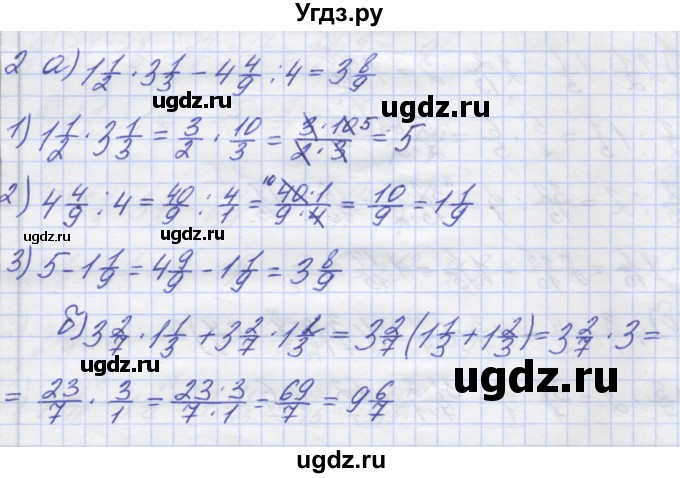 Угдз.ру
2 а) 1 1/2 · 3 1/3 − 4 4/9 : 4 = 3 8/9
ugdz.ru
ugdz.ru
1) 1 1/2 · 3 1/3 = 3/2 · 10/3 = 3 · 10 5/2 · 3 = 5
2) 4 4/9 : 4 = 40/9 : 4/1 = 10 40 · 1/9 · 4 = 10/9 = 1 1/9
ugdz.ru
ugdz.ru
ugdz.ru
3) 5 − 1 1/9 = 4 9/9 − 1 1/9 = 3 8/9
б) 3 2/7 · 1 1/3 + 3 2/7 · 1 2/3 = 3 2/7 (1 1/3 + 1 2/3) = 3 2/7 · 3 =
ugdz.ru
ugdz.ru
= 23/7 · 3/1 = 23 · 3/7 · 1 = 69/7 = 9 6/7
ugdz.ru